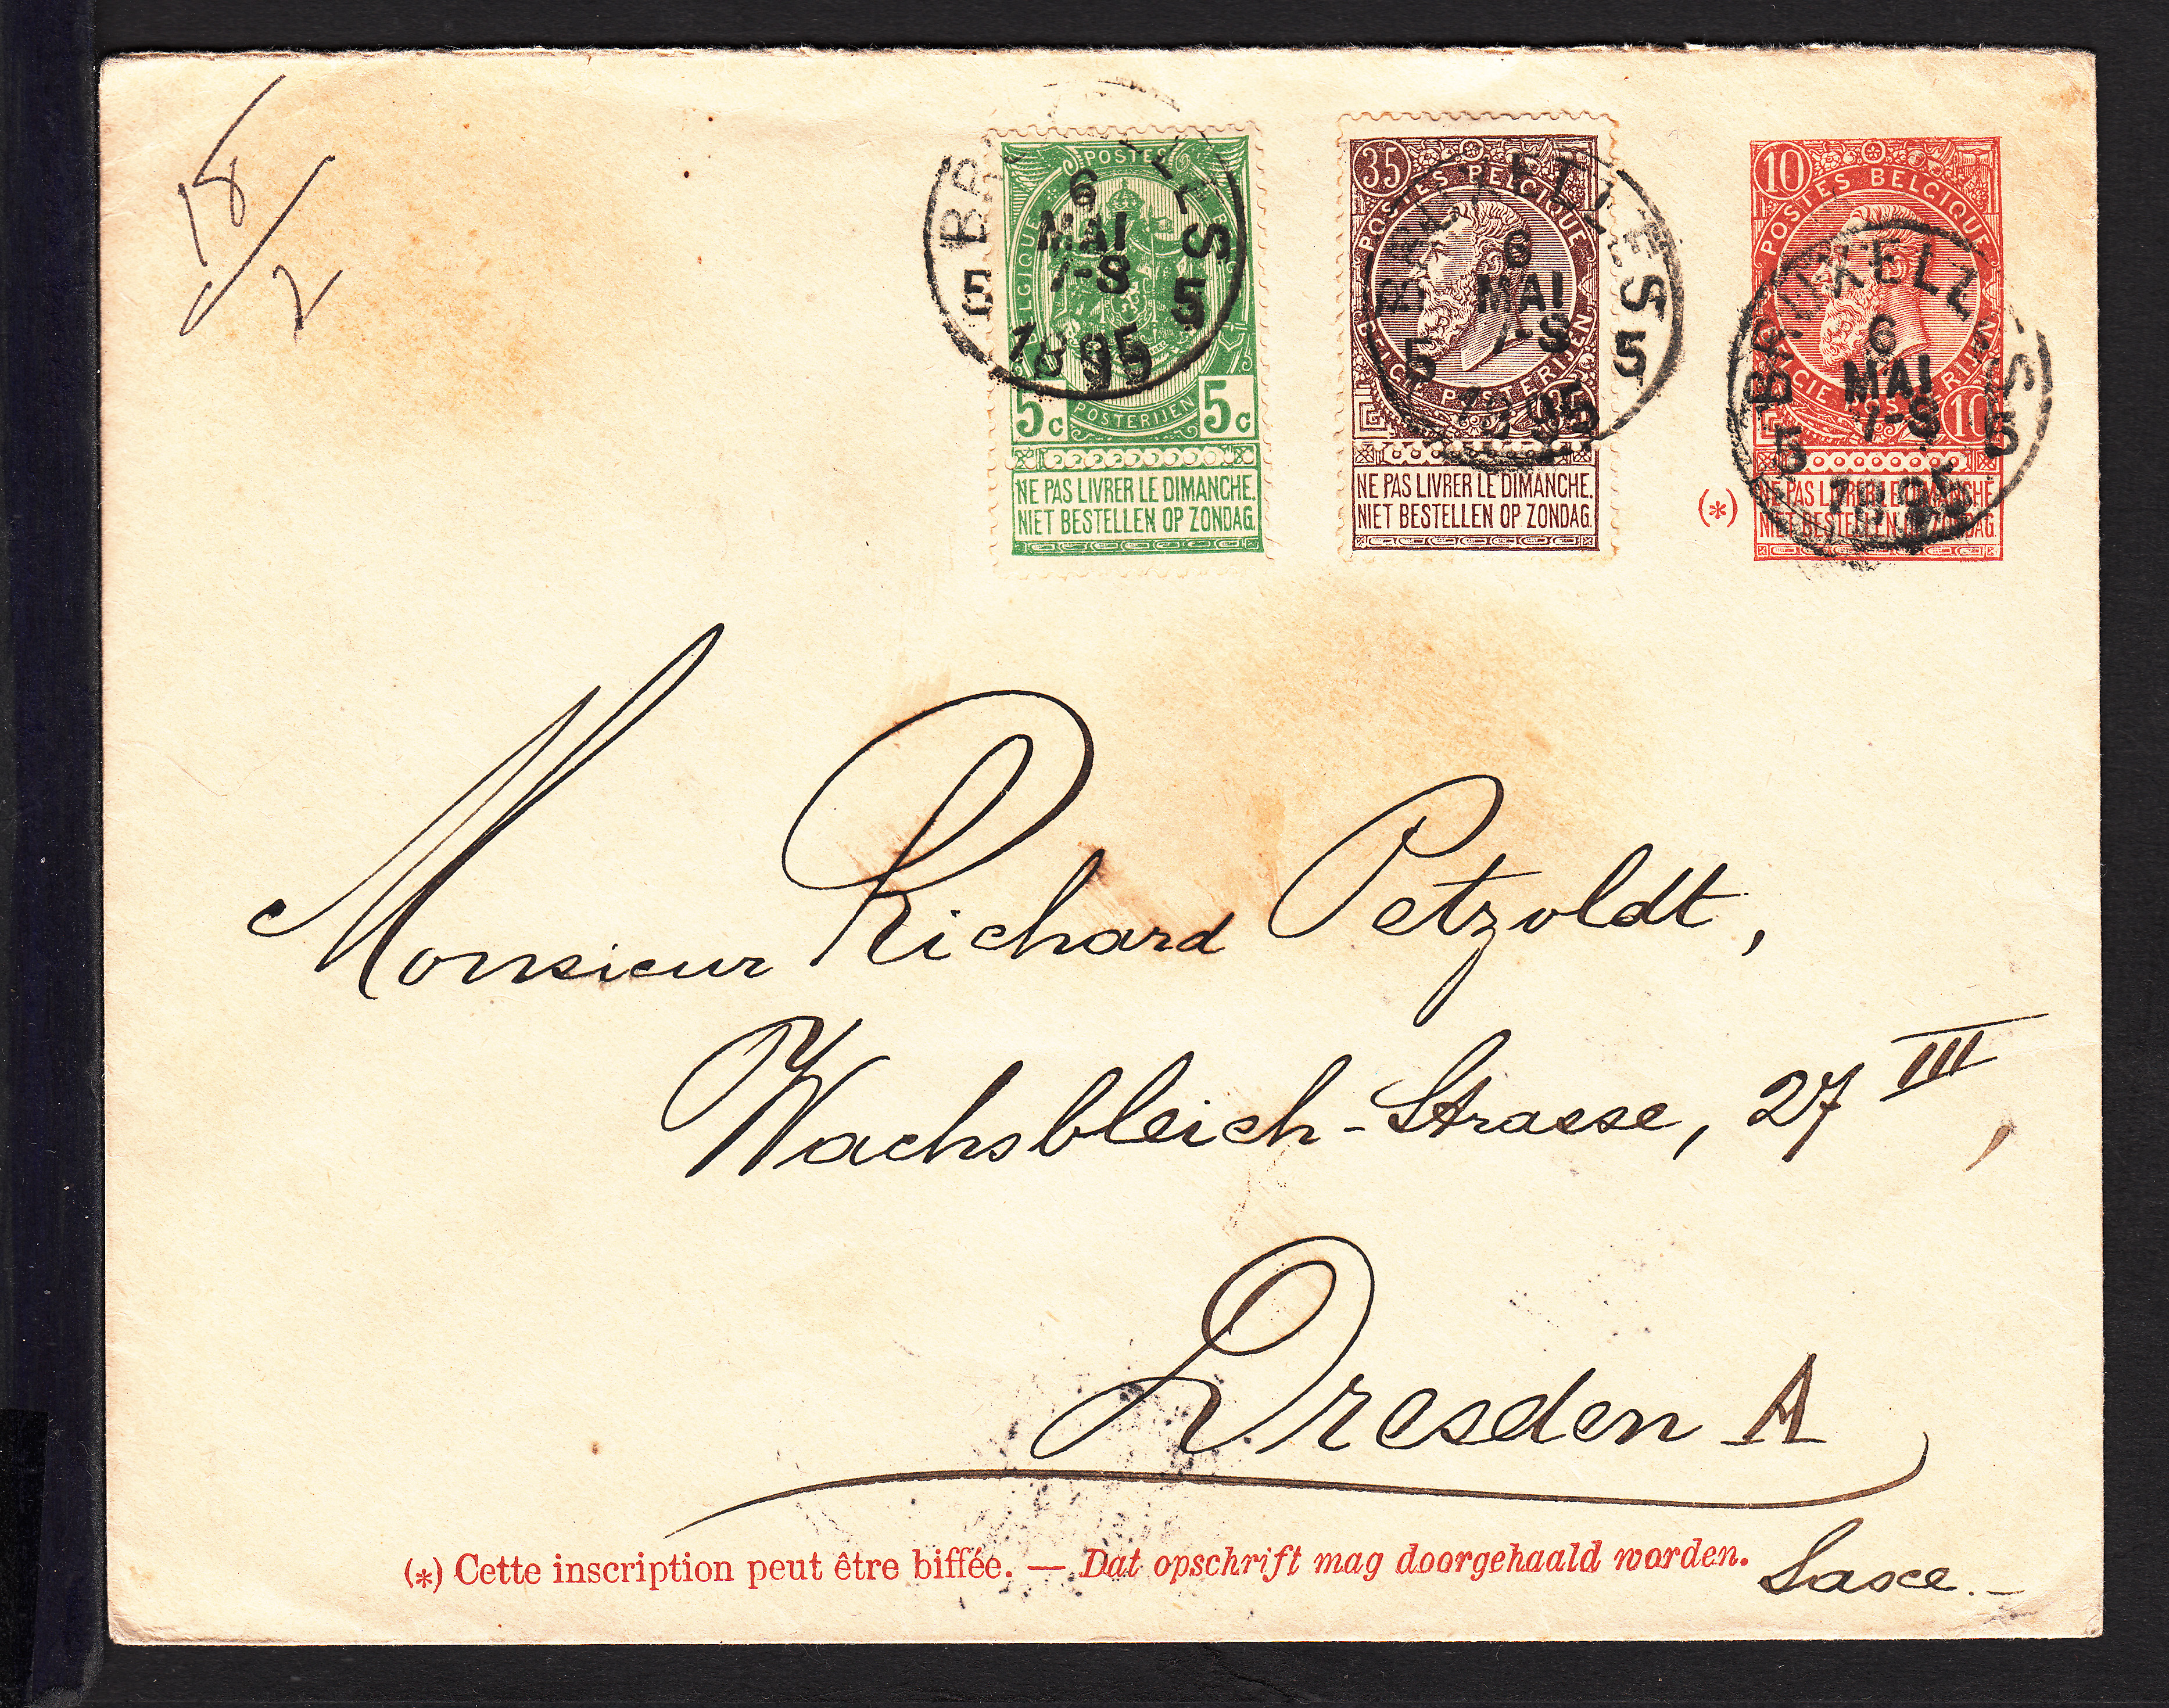 18/2
POSTES
BELGIQUE
5c 5c
POSTERIJEN
NE PAS LIVRER LE DIMANCHE.
NIET BESTELLEN OP ZONDAG.
6
MAI
7-S
1895
5
35
POSTES BELGIQUE
BELGIË POSTERIJEN
NE PAS LIVRER LE DIMANCHE.
NIET BESTELLEN OP ZONDAG.
BRUXELLES
5 5
6
MAI
7-S
1895
10
POSTES BELGIQUE
BELGIË POSTERIJEN
10
(*) NE PAS LIVRER LE DIMANCHE.
NIET BESTELLEN OP ZONDAG.
BRUXELLES
5 5
6
MAI
7-S
1895
Monsieur Richard Petzoldt,
Wachsbleich-Strasse, 27 III,
Dresden A
(*) Cette inscription peut être biffée. — Dat opschrift mag doorgehaald worden.
Saxe.-